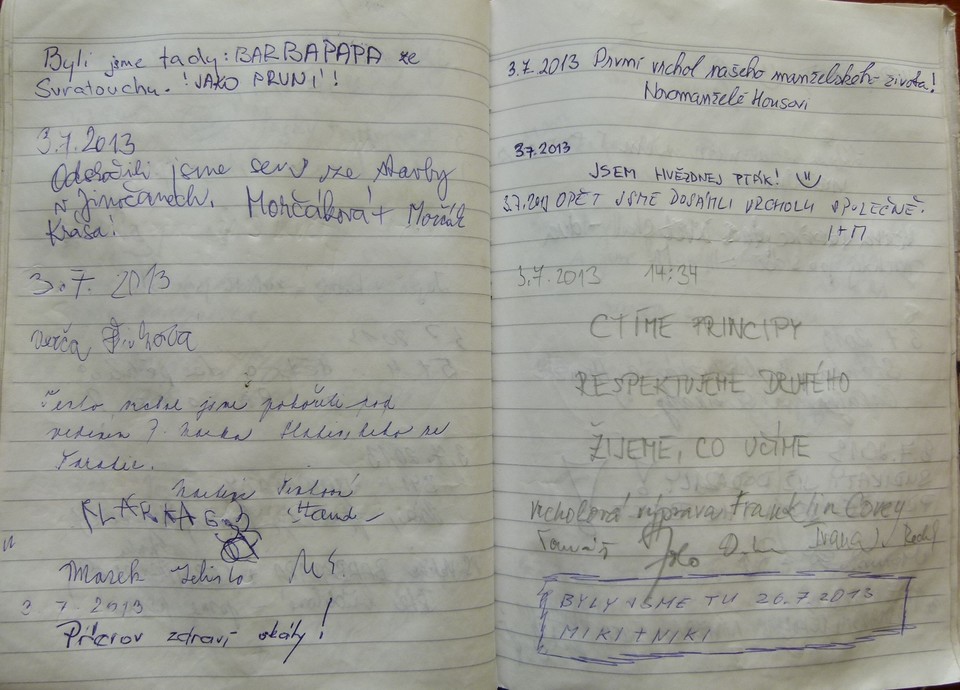 Byli jsme tady: BARBAPAPA ze
Svratouchu. !JAKO PRVNÍ!!
3.7.2013
jsme se ze stavby
v Jinočanech. Morčáková + Morčák
Krása!
3.7. 2013
Verča
Tento vrchol jsme pokořili pod
vedením
KLÁRKA G
Marek
3 7. 2013
Přerov zdraví skály!
3.7.2013 První vrchol našeho manželského života!
Novomanželé Housovi
3.7.2013
JSEM HVĚZDNEJ PTÁK!
3.7.2013 OPĚT JSME DOSÁHLI VRCHOLU SPOLEČNĚ.
I+M
3.7.2013 14:34
CTÍME PRINCIPY
RESPEKTUJEME DRUHÉHO
ŽIJEME, CO UČÍME
Vrcholová výprava Franklin Covey
Tomáš Ivana
BYLY JSME TU 26.7 2013
MIKI + NIKI